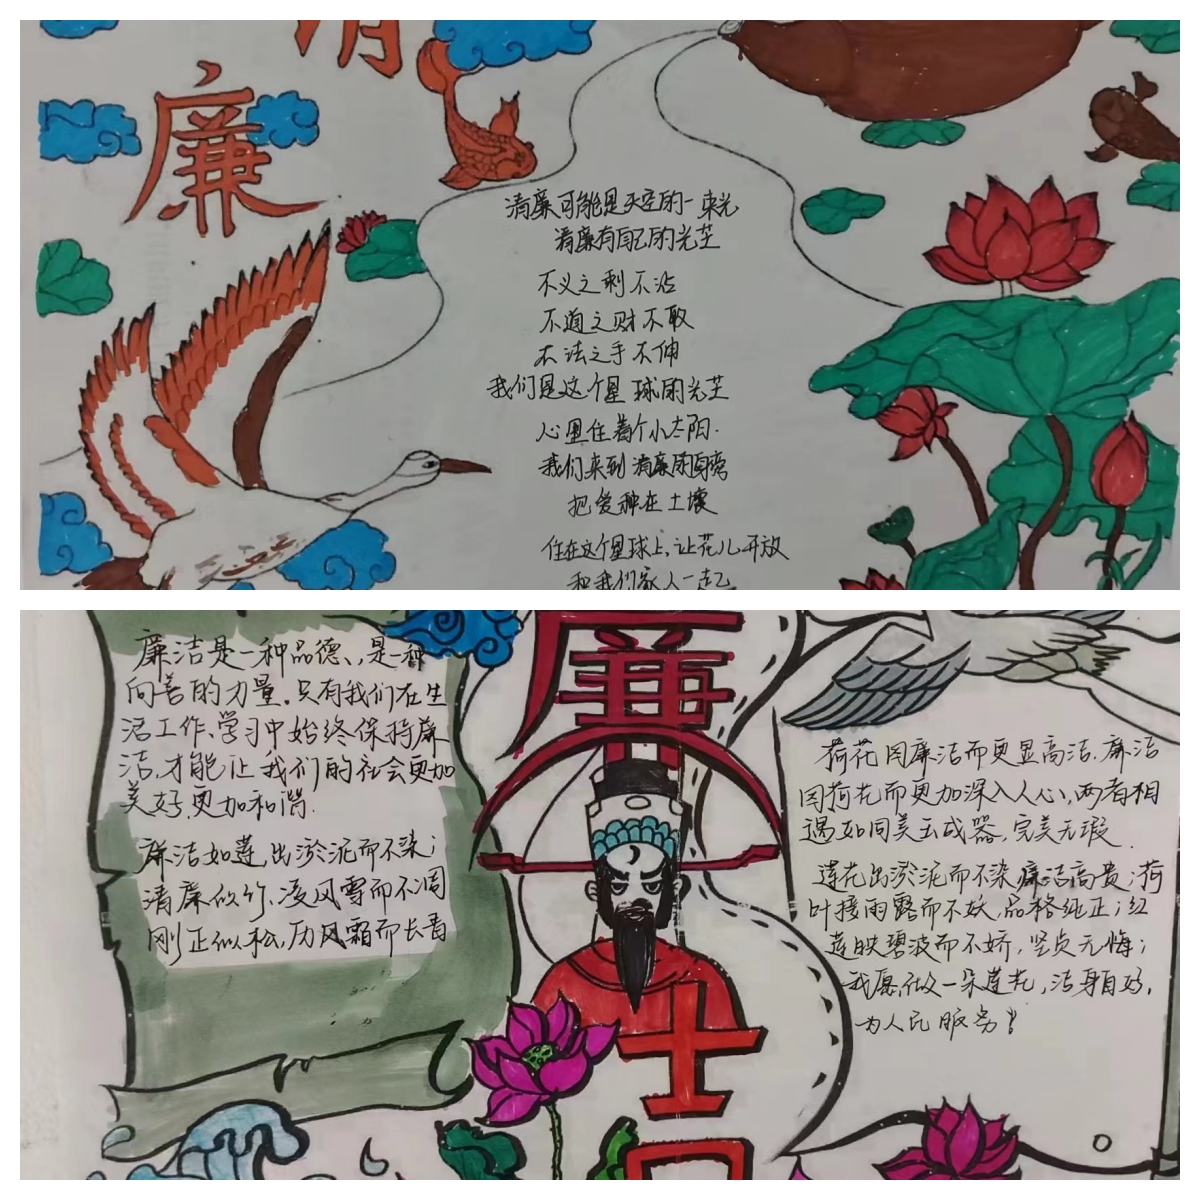 清
廉
清廉可能是天空的一束光
清廉有自己的光芒
不义之利不沾
不道之财不取
不法之手不伸
我们是这个星球的光芒
心里住着个小太阳.
我们来到清廉的
把爱种在土壤
住在这个星球上,让花儿开放
和我们家人一起
廉洁是一种品德、,是一种
向善的力量.只有我们在生
活工作、学习中始终保持廉
洁,才能让我们的社会更加
美好,更加和谐.
廉洁如莲,出淤泥而不染;
清廉似竹,凌风雪而不凋
刚正似松,历风霜而长青
廉
洁
荷花因廉洁而更显高洁.廉洁
因荷花而更加深入人心,两者相
遇如同美玉成器,完美无瑕.
莲花出淤泥而不染,廉洁高贵;荷
叶接雨露而不妖,品格纯正;红
莲映碧波而不娇,坚贞无悔;
我愿做一朵莲花,洁身自好,
为人民服务!